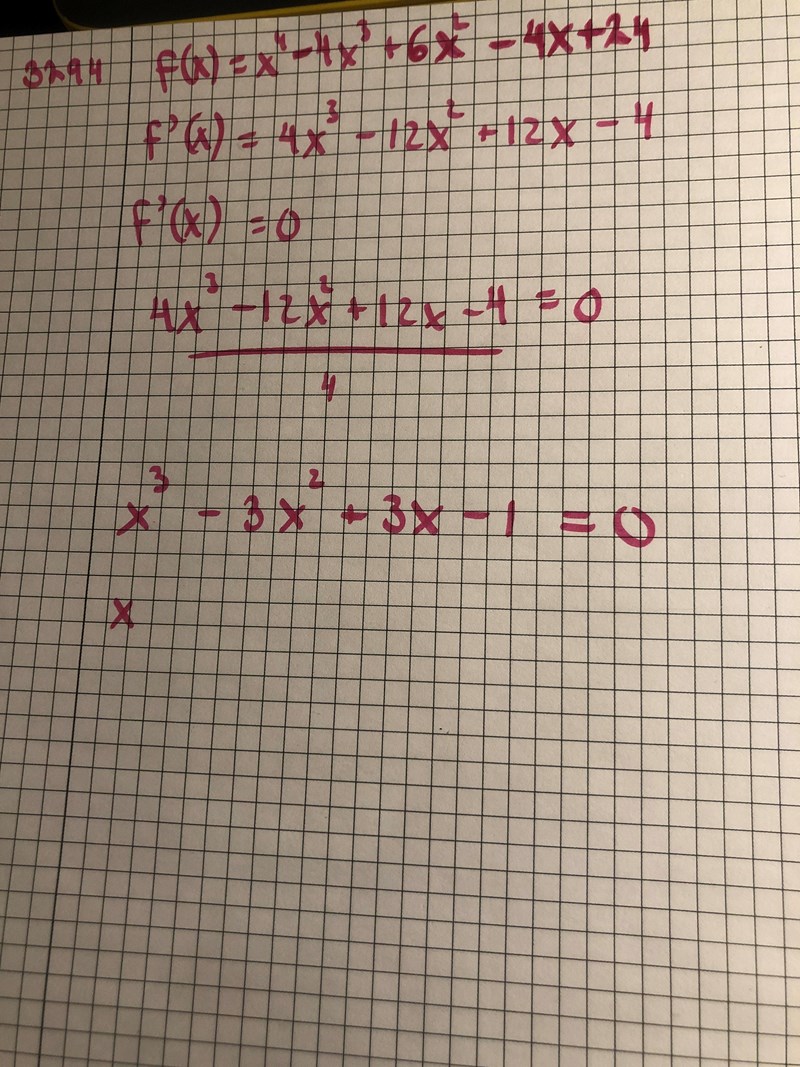 3294 f(x) = x⁴ - 4x³ + 6x² - 4x + 24
f'(x) = 4x³ - 12x² + 12x - 4
f'(x) = 0
4x³ - 12x² + 12x - 4 = 0
4
x³ - 3x² + 3x - 1 = 0
x